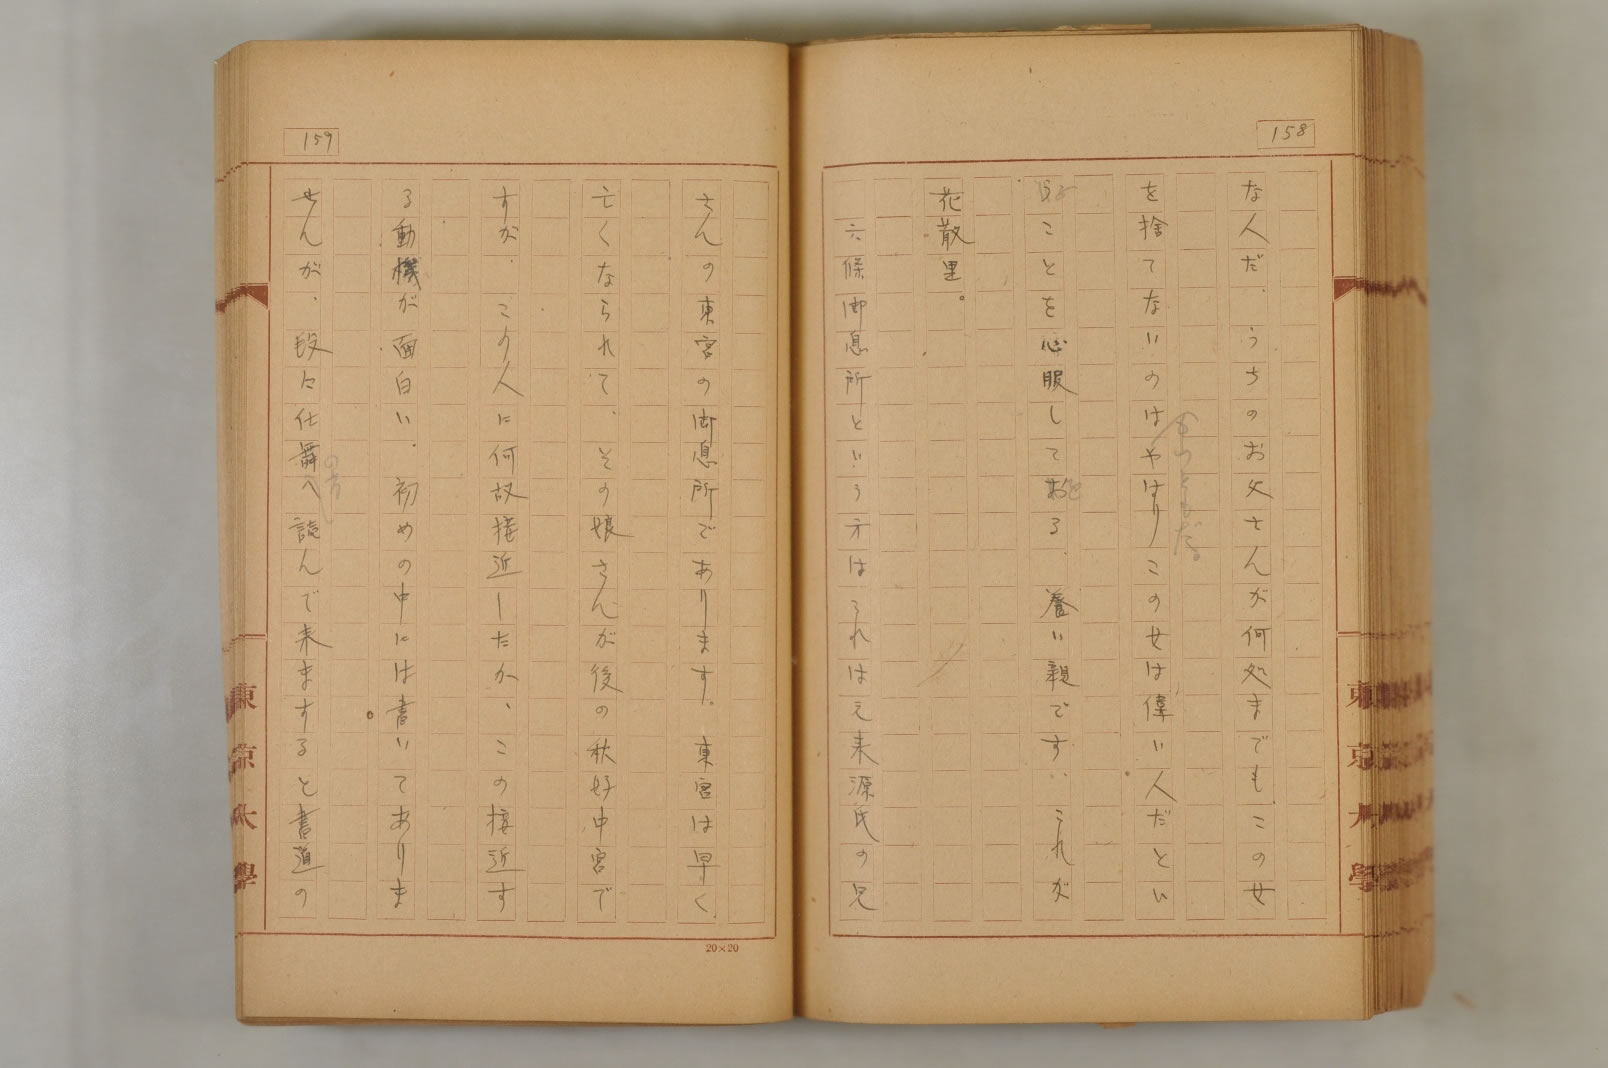 158
な人だ、うちのお父さんが何処までもこの女
を捨てないのはやはりこの女は偉い人だとい
もつともだ。
ことを心服しておる、養い親です、これが
花散里。
六條御息所という方はこれは元来源氏の兄
東京大學
159
さんの東宮の御息所であります。東宮は早く
亡くなられて、その娘さんが後の秋好中宮で
すが、この人に何故接近したか、この接近す
る動機が面白い、初めの中には書いてありま
の方
せんが、段々仕舞へ読んで来ますると書道の
東京大學
20×20